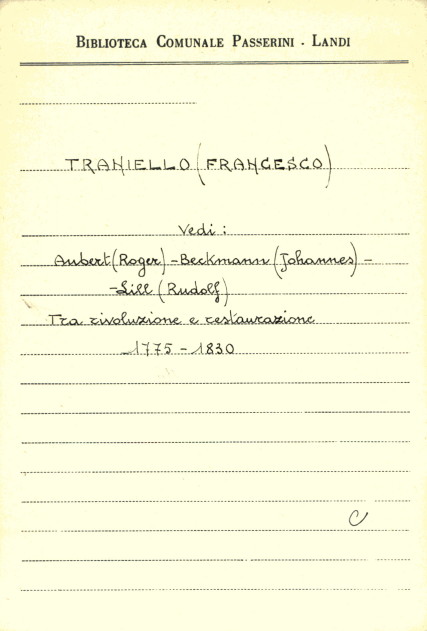 BIBLIOTECA COMUNALE PASSERINI - LANDI
TRANIELLO (FRANCESCO)
Vedi:
Aubert (Roger) - Beckmann (Johannes) -
- Lill (Rudolf)
Tra rivoluzione e restaurazione
1775 - 1830
C